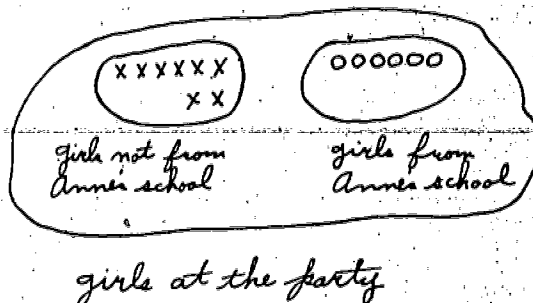 X X X X X X
X X
O O O O O O
girls not from
Anne's school
girls from
Anne's school
girls at the party